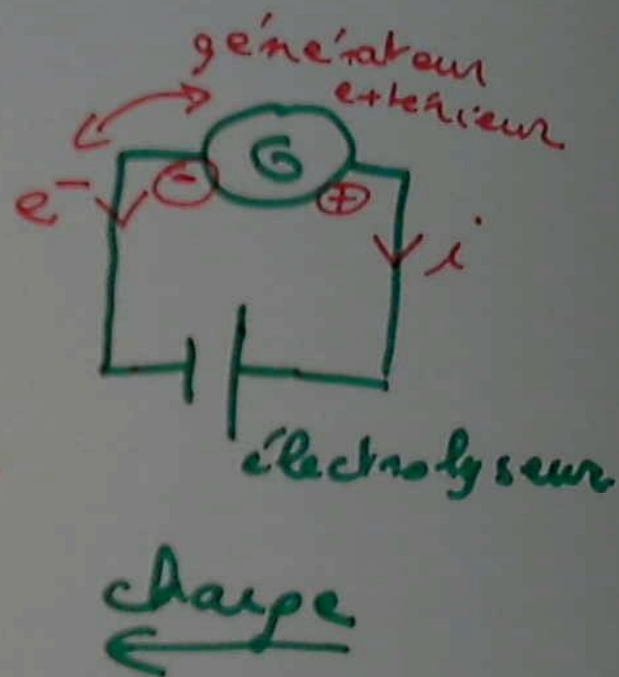 générateur
extérieur
G
e⁻ - + i
électrolyseur
charge